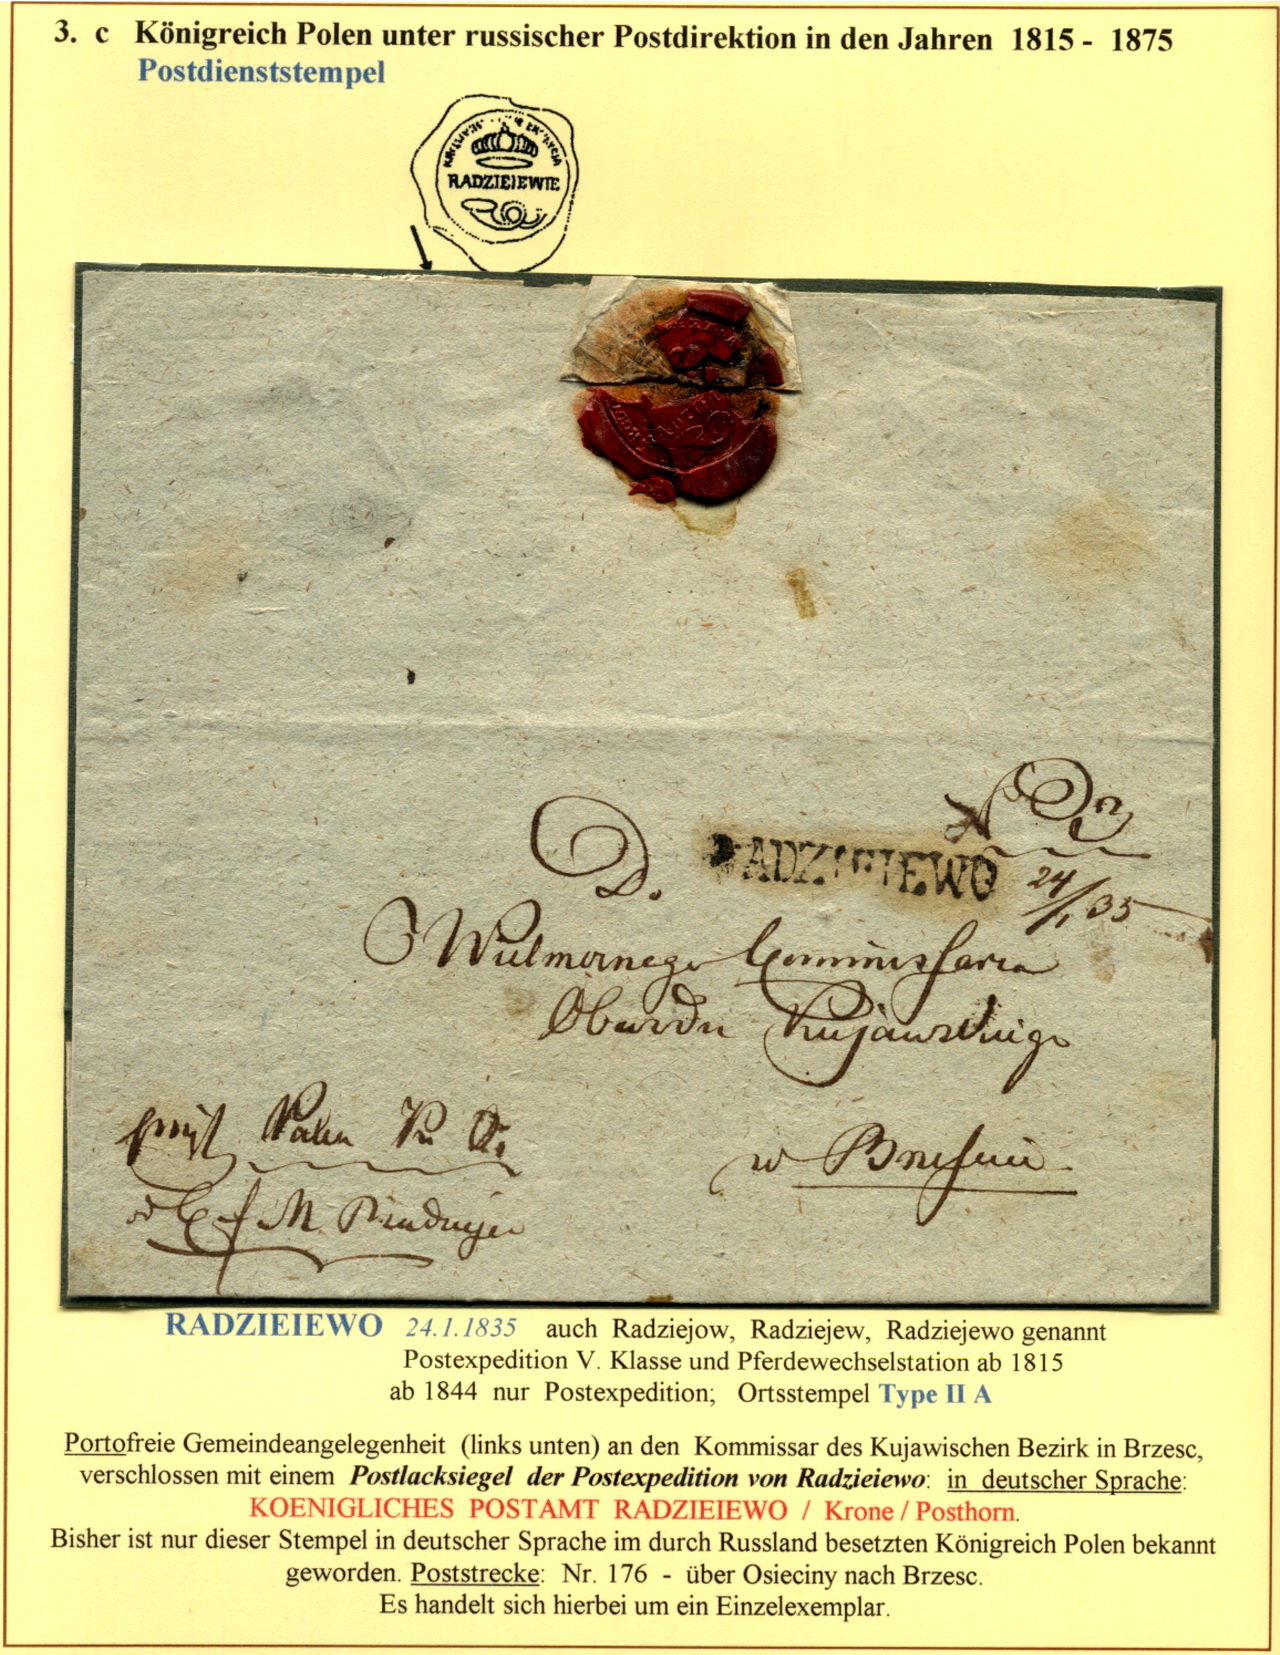 3. c Königreich Polen unter russischer Postdirektion in den Jahren 1815 - 1875
Postdienststempel
RADZIEIEWIE
D.
RADZIEIEWO
24/1 35
Wielmożnego Commissarza
Obwodu Kujawskiego
w Brześciu
RADZIEIEWO 24.1.1835 auch Radziejow, Radziejew, Radziejewo genannt
Postexpedition V. Klasse und Pferdewechselstation ab 1815
ab 1844 nur Postexpedition; Ortsstempel Type II A
Portofreie Gemeindeangelegenheit (links unten) an den Kommissar des Kujawischen Bezirk in Brzesc,
verschlossen mit einem Postlacksiegel der Postexpedition von Radzieiewo: in deutscher Sprache:
KOENIGLICHES POSTAMT RADZIEIEWO / Krone / Posthorn.
Bisher ist nur dieser Stempel in deutscher Sprache im durch Russland besetzten Königreich Polen bekannt
geworden. Poststrecke: Nr. 176 - über Osieciny nach Brzesc.
Es handelt sich hierbei um ein Einzelexemplar.